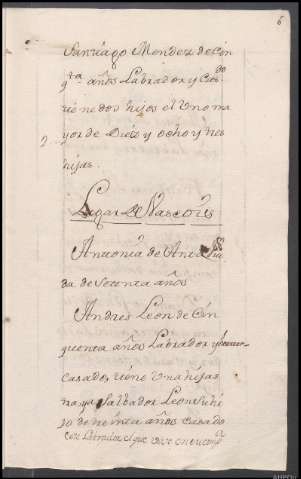 6
Santiago Mendez de Cin
q.ta años Labrador y Cas.do
tiene dos hijos el Uno ma
yor de Diez y ocho y tres
hijas.
Lugar de
Antonia de Viu
da de Setenta años
Andres Leon de Cin
quenta años Labrador y
casado, tiene Una hija
Salbador Leon su hi
jo de años Casado
Labrador